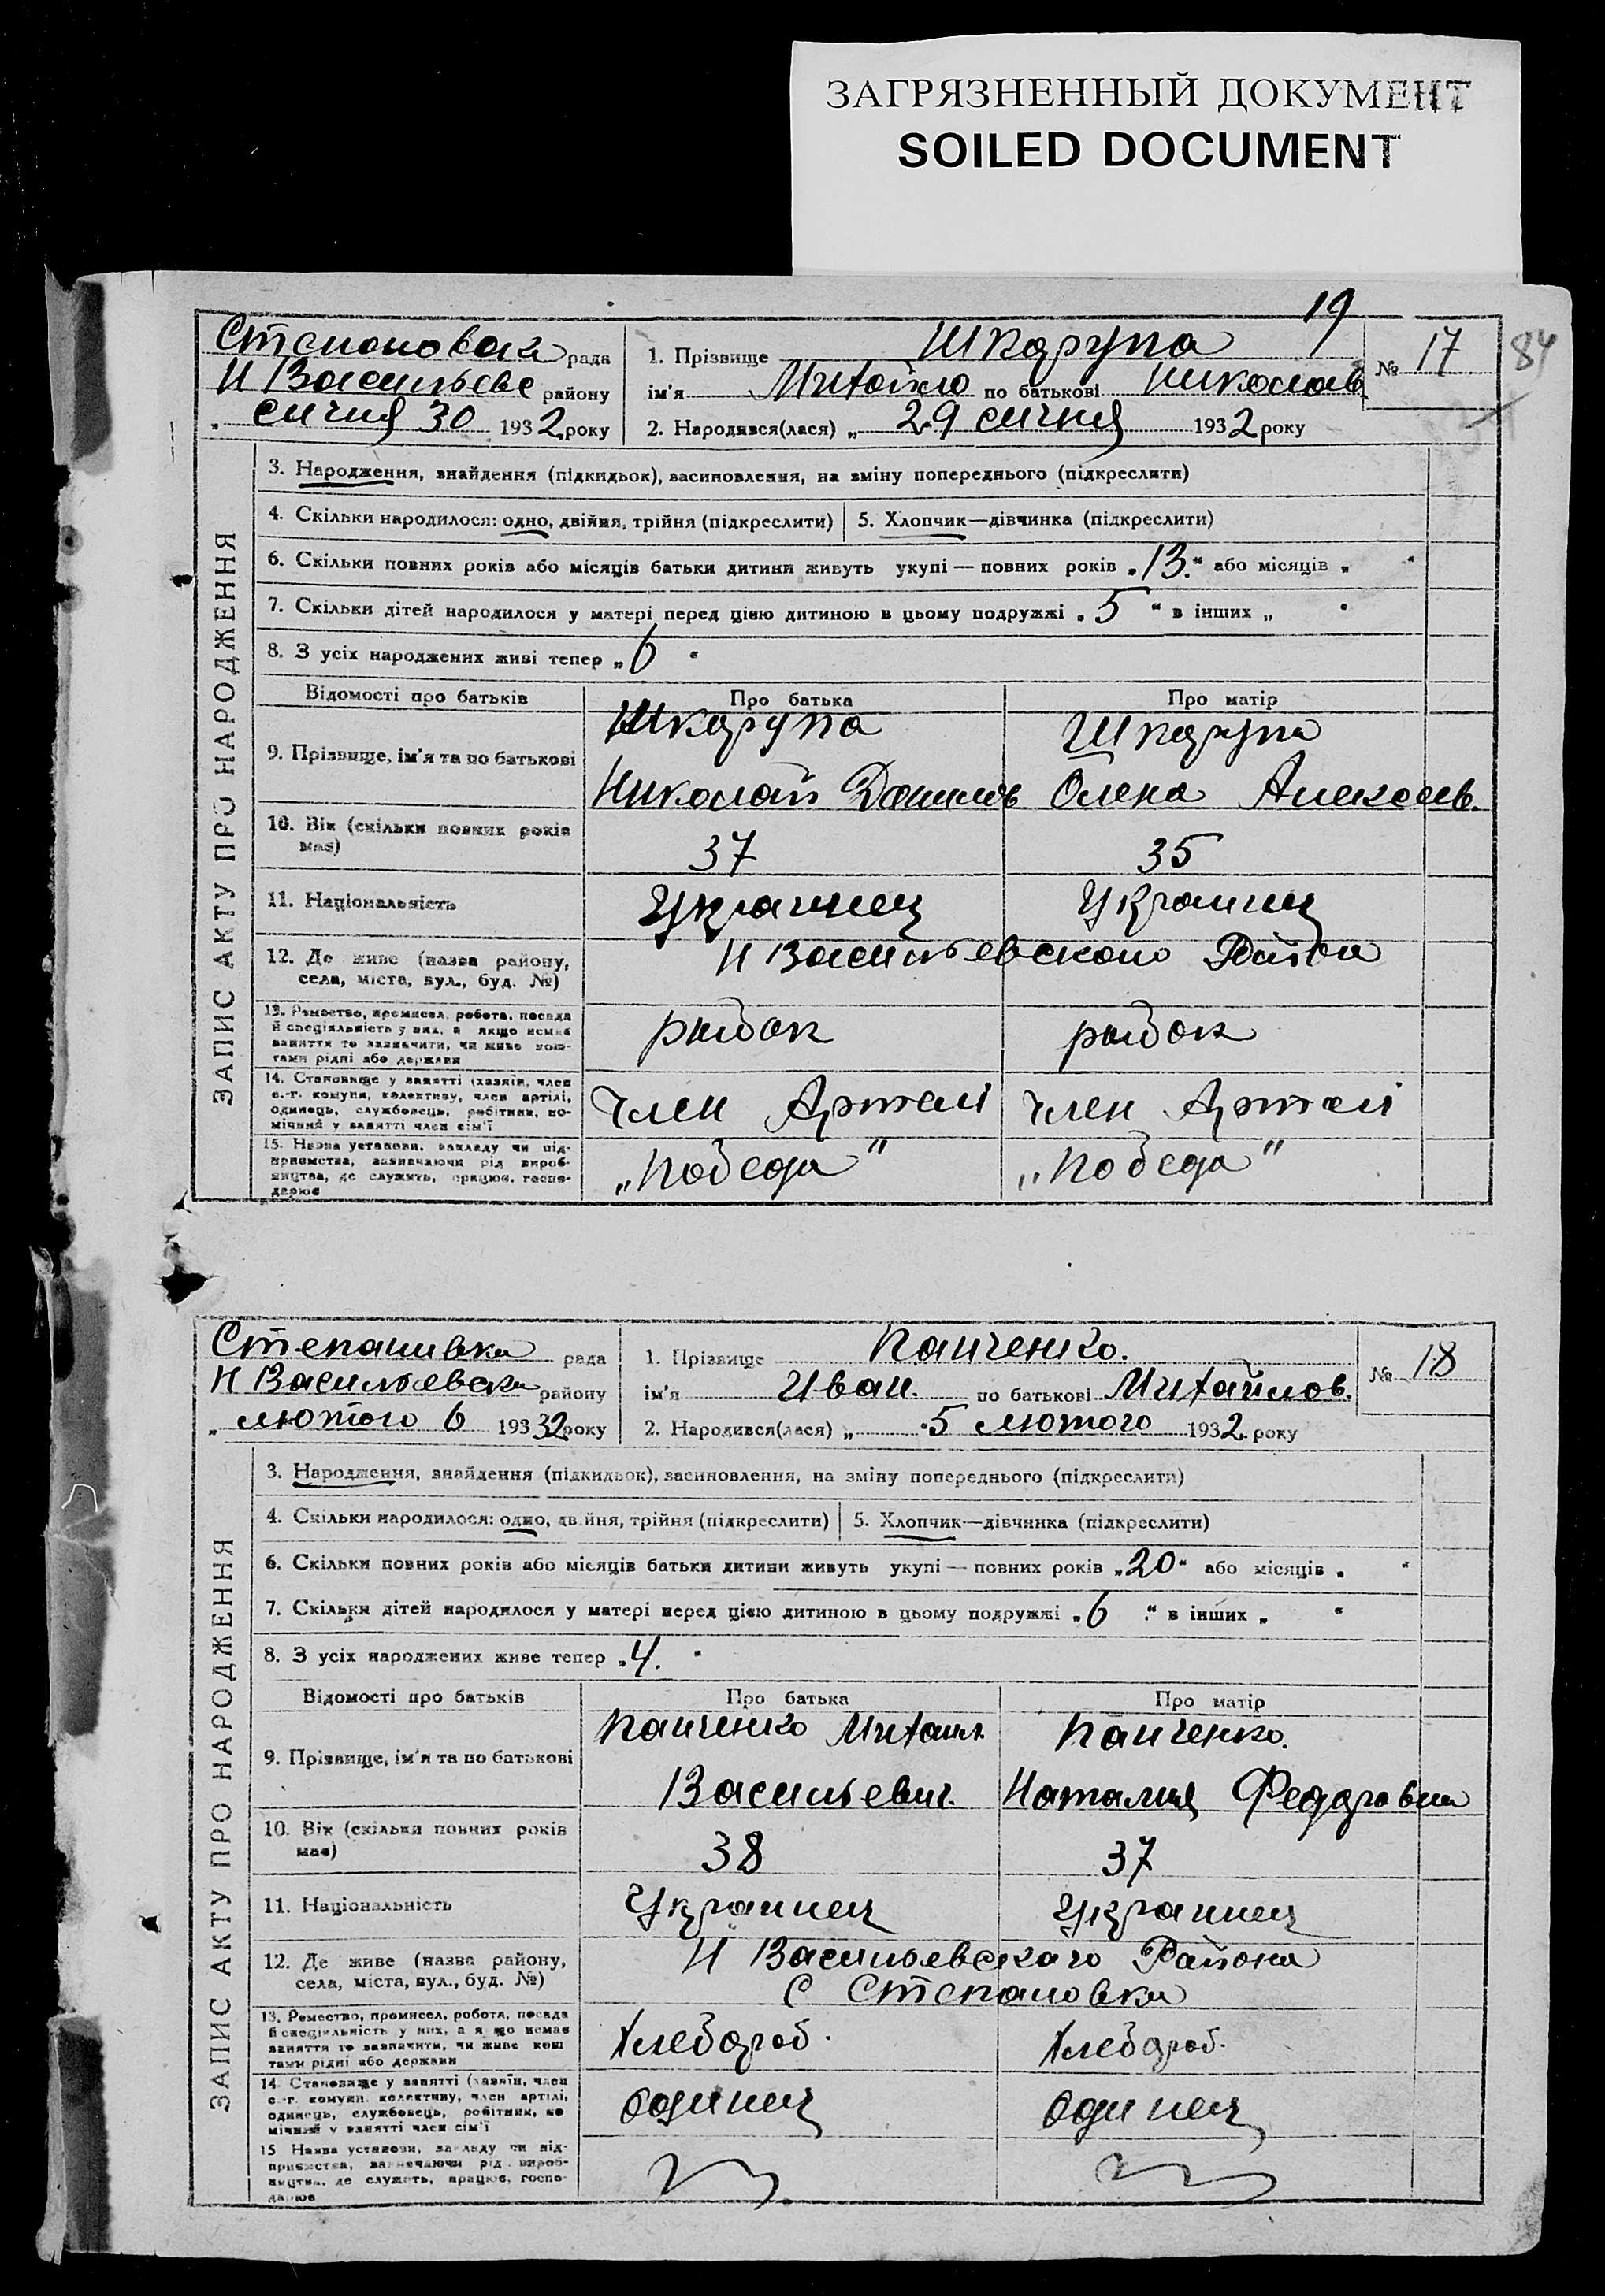 ЗАГРЯЗНЕННЫЙ ДОКУМЕНТ
SOILED DOCUMENT
19
84
Степановска рада
Н Васильевс району
„ сичня 30 1932 року
1. Прізвище Шкарупа
ім'я Михайло по батькові Николаев
2. Народився(лася) „ 29 сичня 1932 року
№ 17
ЗАПИС АКТУ ПРО НАРОДЖЕННЯ
3. Народження, знайдення (підкидьок), засиновлення, на зміну попереднього (підкреслити)
4. Скільки народилося: одно, двійня, трійня (підкреслити)
5. Хлопчик—дівчинка (підкреслити)
6. Скільки повних років або місяців батьки дитини живуть укупі — повних років „13." або місяців „ "
7. Скільки дітей народилося у матері перед цією дитиною в цьому подружжі „5" в інших „ "
8. З усіх народжених живі тепер „6 "
Відомості про батьків
Про батька
Про матір
9. Прізвище, ім'я та по батькові
Шкарупа
Николай Данилов
Шкарупа
Олена Алексеев.
10. Вік (скільки повних років
має)
37
35
11. Національність
Украинец
Украинец
12. Де живе (назва району,
села, міста, вул., буд. №)
Н Васильевского Район
13. Ремество, промисел, робота, посада
й спеціяльність у них, а якщо нема
заняття то зазначити, чи живе кош-
тами рідні або держави
рыбак
рыбак
14. Становище у занятті (хазяїн, член
с.-г. комуни, колективу, член артілі,
одинець, службовець, робітник, по-
мічний у занятті член сім'ї
член Артели
член Артели
15. Назва установи, закладу чи під-
приємства, зазначаючи рід вироб-
ництва, де служить, працює, госпо-
дарює
„Победа"
„Победа"
Степанивка рада
Н Васильевска району
„ лютого 6 19332 року
1. Прізвище Панченко.
ім'я Иван. по батькові Михайлов.
2. Народився(лася) „ 5 лютого 1932 року
№ 18
ЗАПИС АКТУ ПРО НАРОДЖЕННЯ
3. Народження, знайдення (підкидьок), засиновлення, на зміну попереднього (підкреслити)
4. Скільки народилося: одно, двійня, трійня (підкреслити)
5. Хлопчик—дівчинка (підкреслити)
6. Скільки повних років або місяців батьки дитини живуть укупі — повних років „20" або місяців „ "
7. Скільки дітей народилося у матері перед цією дитиною в цьому подружжі „6 " в інших „ "
8. З усіх народжених живе тепер „4. "
Відомості про батьків
Про батька
Про матір
9. Прізвище, ім'я та по батькові
Панченко Михаил
Васильевич.
Панченко.
Наталия Федоровна
10. Вік (скільки повних років
має)
38
37
11. Національність
Украинец
Украинец
12. Де живе (назва району,
села, міста, вул., буд. №)
Н Васильевского Района
С Степановка
13. Ремество, промисел, робота, посада
й спеціяльність у них, а якщо немає
заняття то зазначити, чи живе кош
тами рідні або держави
Хлебороб.
Хлебороб.
14. Становище у занятті (хазяїн, член
с.-г. комуни, колективу, член артілі,
одинець, службовець, робітник, по
мічний у занятті член сім'ї
одинец
одинец
15 Назва установи, закладу чи під-
приємства, зазначаючи рід вироб-
ництва, де служить, працює, госпо-
дарює